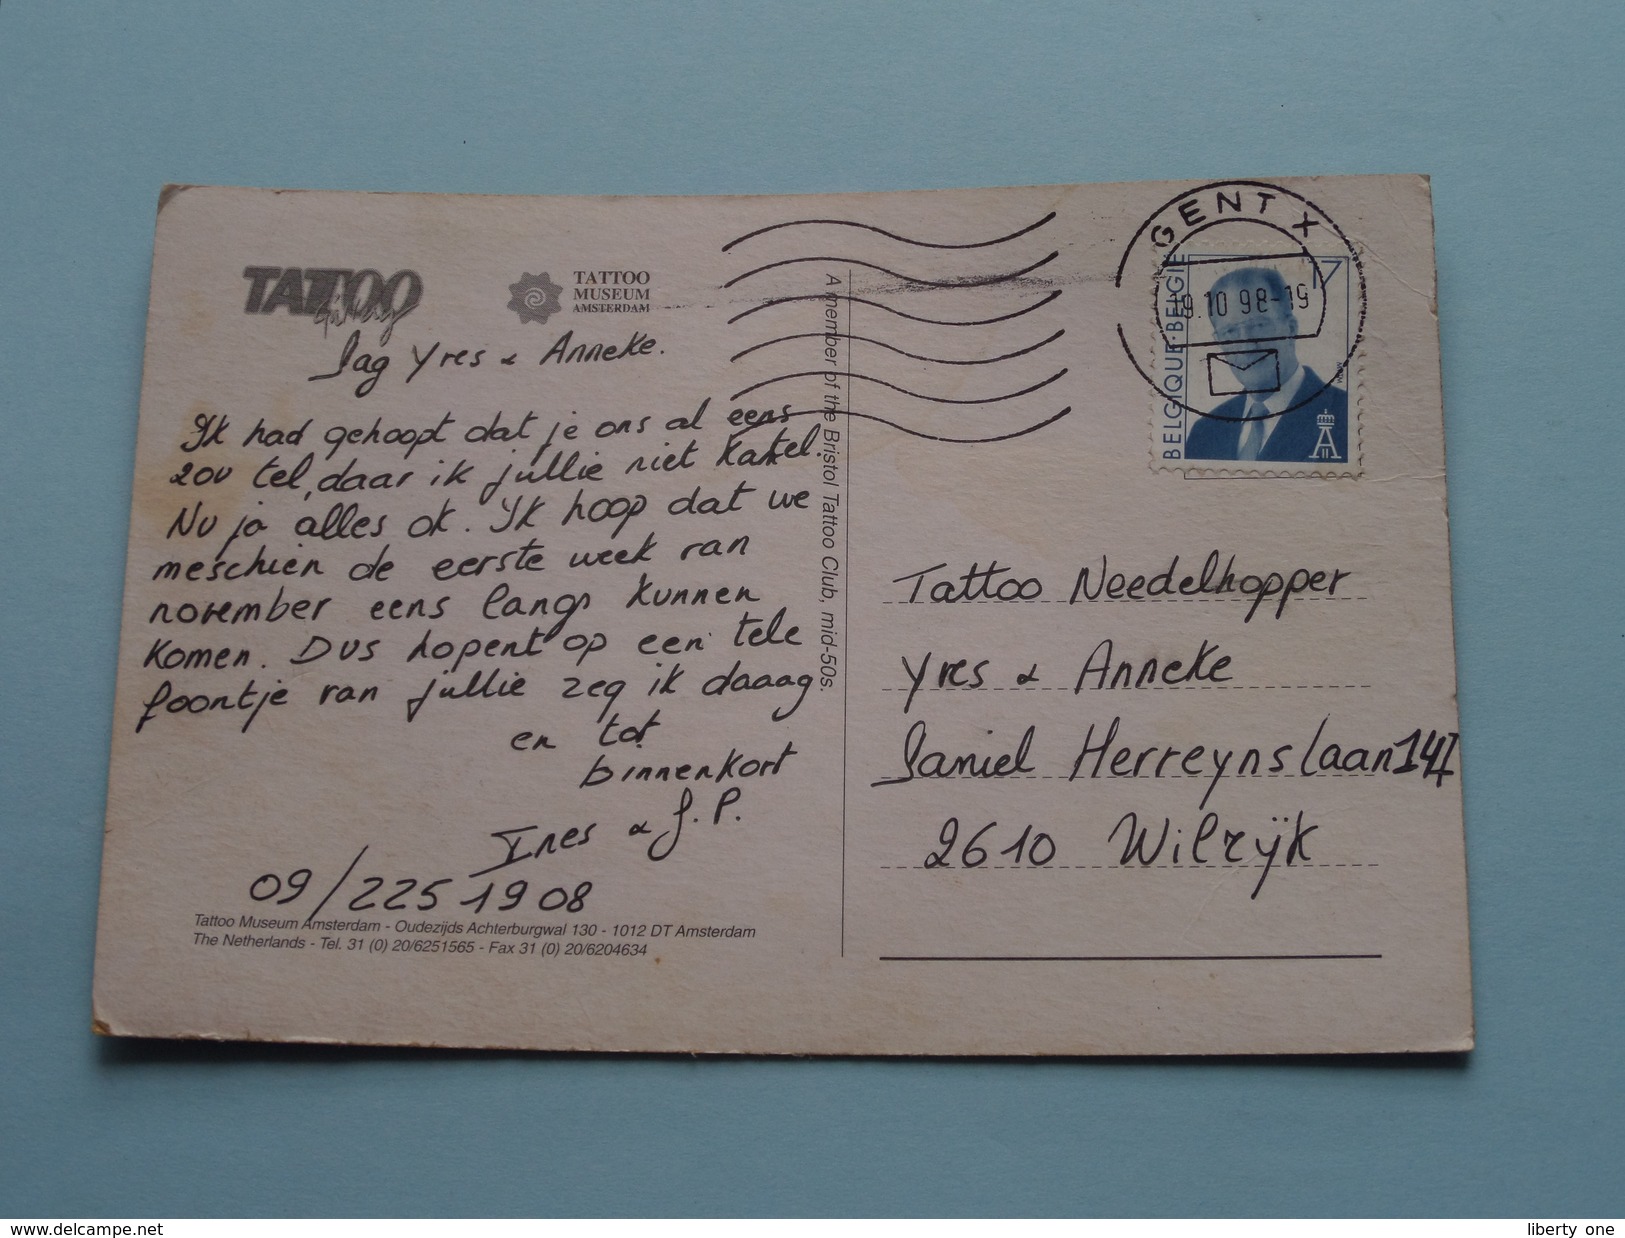 TATTOO
TATTOO
MUSEUM
AMSTERDAM
Dag Yves & Anneke.
Ik had gehoopt dat je ons al eens
zou tel, daar ik jullie niet kan tel.
Nu ja alles ok. Ik hoop dat we
meschien de eerste week van
november eens langs kunnen
komen. Dus hopent op een tele
foontje van jullie zeg ik daaag
en tot
binnenkort
Ines & J.P.
09/225 19 08
Tattoo Museum Amsterdam - Oudezijds Achterburgwal 130 - 1012 DT Amsterdam
The Netherlands - Tel. 31 (0) 20/6251565 - Fax 31 (0) 20/6204634
A member of the Bristol Tattoo Club, mid-50s.
GENT X
19.10 98-19
BELGIQUE·BELGIE
17
Tattoo Needelhopper
Yves & Anneke
Daniel Herreynslaan 14I
2610 Wilrijk
www.delcampe.net
liberty one